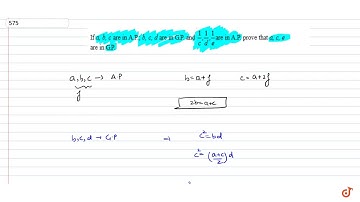 575
If a, b, c are in A.P.; b, c, d are in G.P. and 1/c, 1/d, 1/e are in A.P. prove that a, c, e
are in G.P.
a, b, c → A.P b = a + f c = a + 2f
f
2b = a+c
b, c, d → G.P ⇒ c² = bd
c² = (a+c/2) d